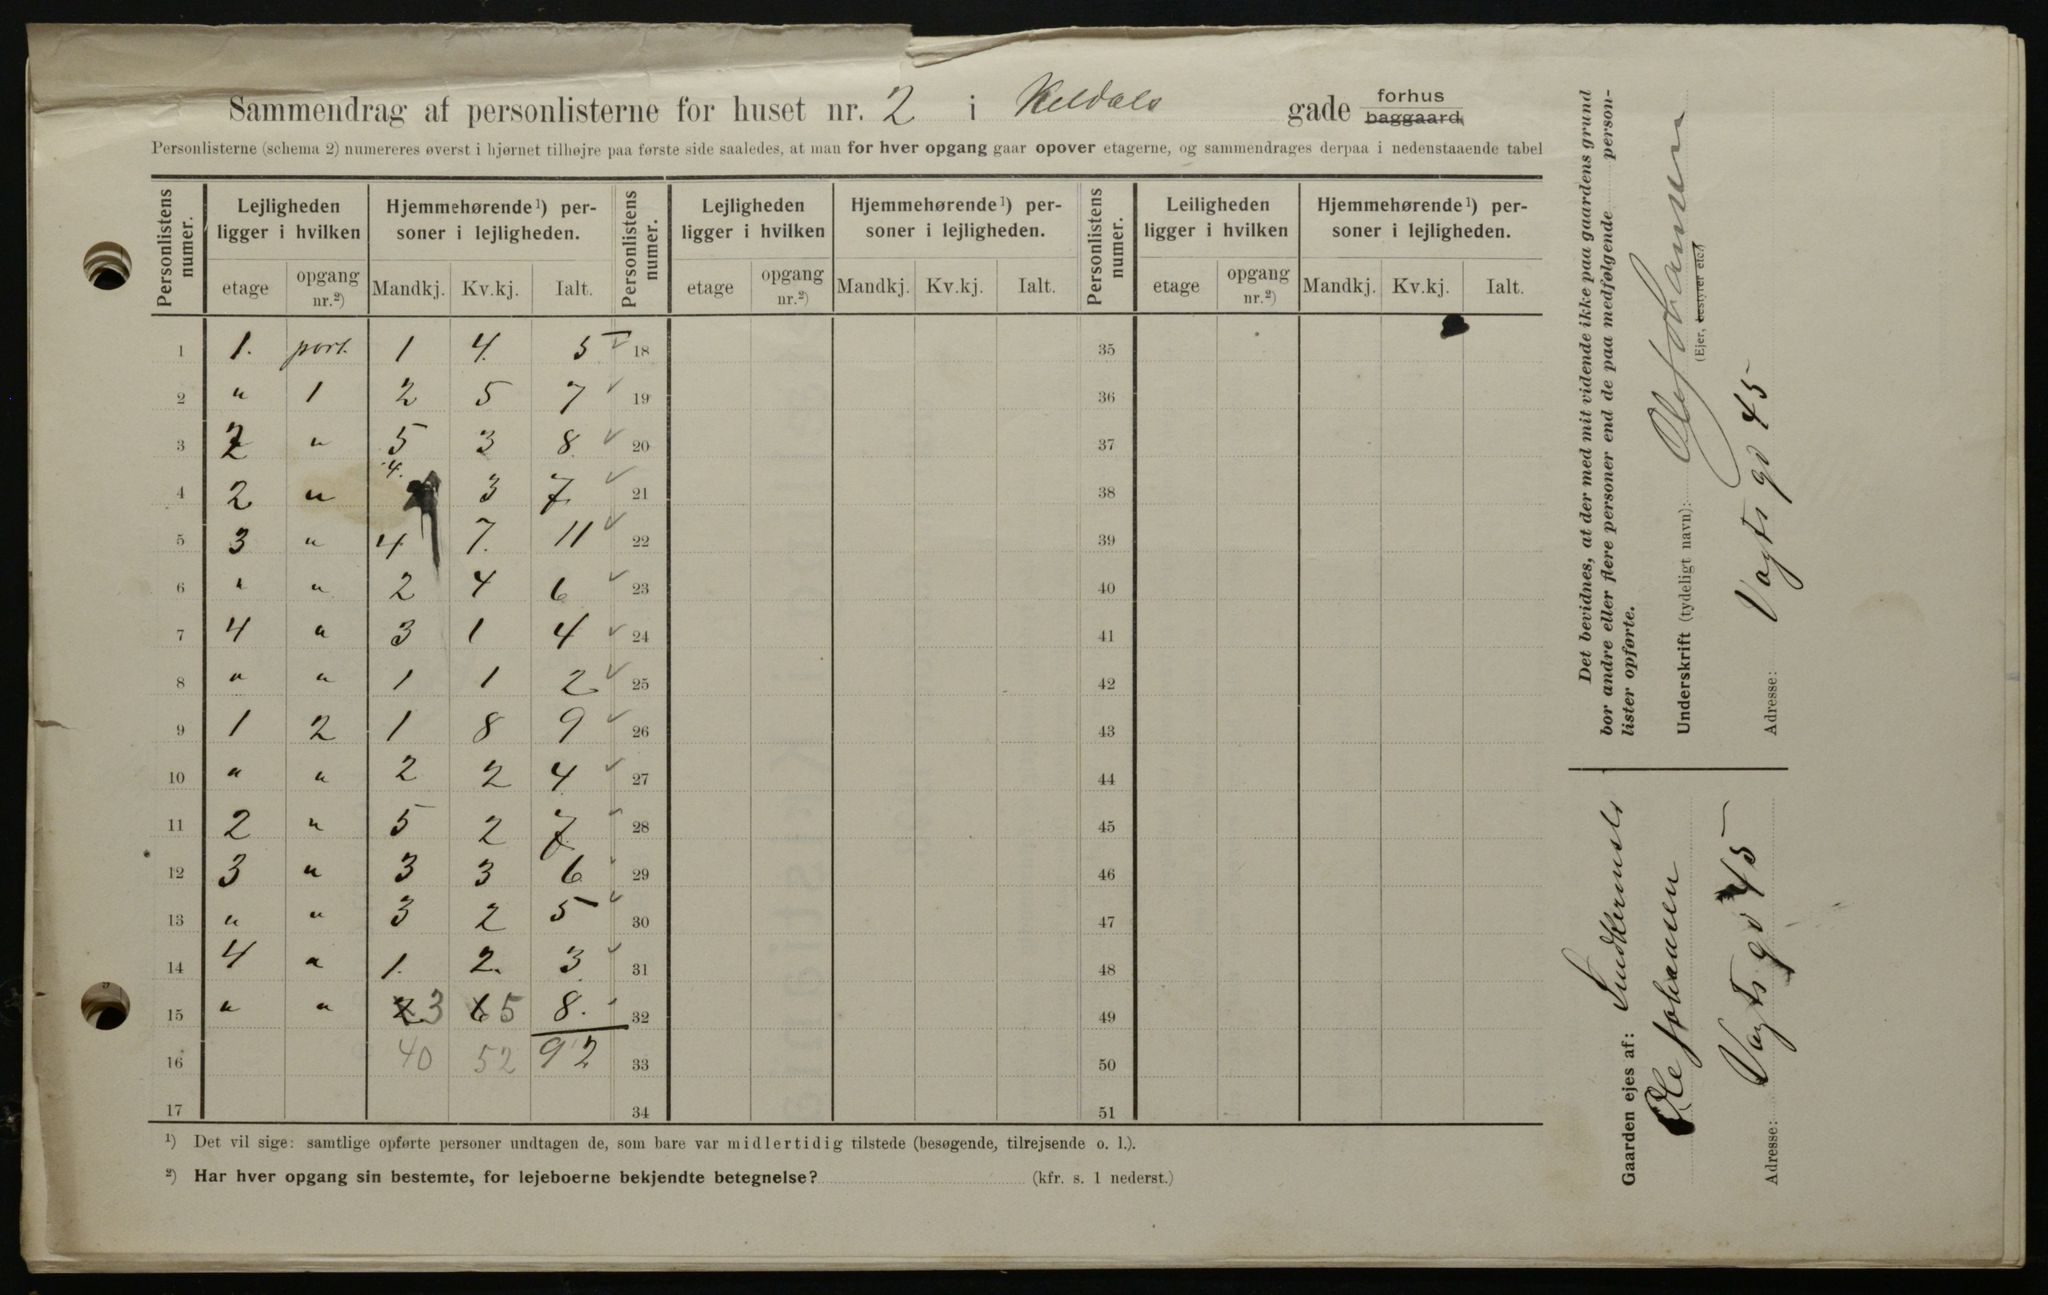 Sammendrag af personlisterne for huset nr. 2 i Keldals gade forhus baggaard
Personlisterne (schema 2) numereres øverst i hjørnet tilhøjre paa første side saaledes, at man for hver opgang gaar opover etagerne, og sammendrages derpaa i nedenstaaende tabel
Personlistens numer. Lejligheden ligger i hvilken Hjemmehørende¹) personer i lejligheden. Personlistens numer. Lejligheden ligger i hvilken Hjemmehørende¹) personer i lejligheden. Personlistens numer. Leiligheden ligger i hvilken Hjemmehørende¹) personer i lejligheden.
etage opgang nr.²) Mandkj. Kv.kj. Ialt. etage opgang nr.²) Mandkj. Kv.kj. Ialt. etage opgang nr.²) Mandkj. Kv.kj. Ialt.
1 1. port. 1 4. 5 18 35
2 " 1 2 5 7 19 36
3 2 " 5 3 8 20 37
4 2 " 4. 3 7 21 38
5 3 " 4 7. 11 22 39
6 " " 2 4 6 23 40
7 4 " 3 1 4 24 41
8 " " 1 1 2 25 42
9 1 2 1 8 9 26 43
10 " " 2 2 4 27 44
11 2 " 5 2 7 28 45
12 3 " 3 3 6 29 46
13 " " 3 2 5 30 47
14 4 " 1. 2. 3. 31 48
15 " " 2 3 6 5 8. 32 49
16 40 52 92 33 50
17 34 51
¹) Det vil sige: samtlige opførte personer undtagen de, som bare var midlertidig tilstede (besøgende, tilrejsende o. l.).
²) Har hver opgang sin bestemte, for lejeboerne bekjendte betegnelse? (kfr. s. 1 nederst.)
Det bevidnes, at der med mit vidende ikke paa gaardens grund
bor andre eller flere personer end de paa medfølgende person-
lister opførte.
Underskrift (tydeligt navn): Ole Johansen
(Ejer, bestyrer etc.)
Adresse: Vogts gd 45
Gaarden ejes af:
Ole Johansen
Adresse: Vogts gd 45